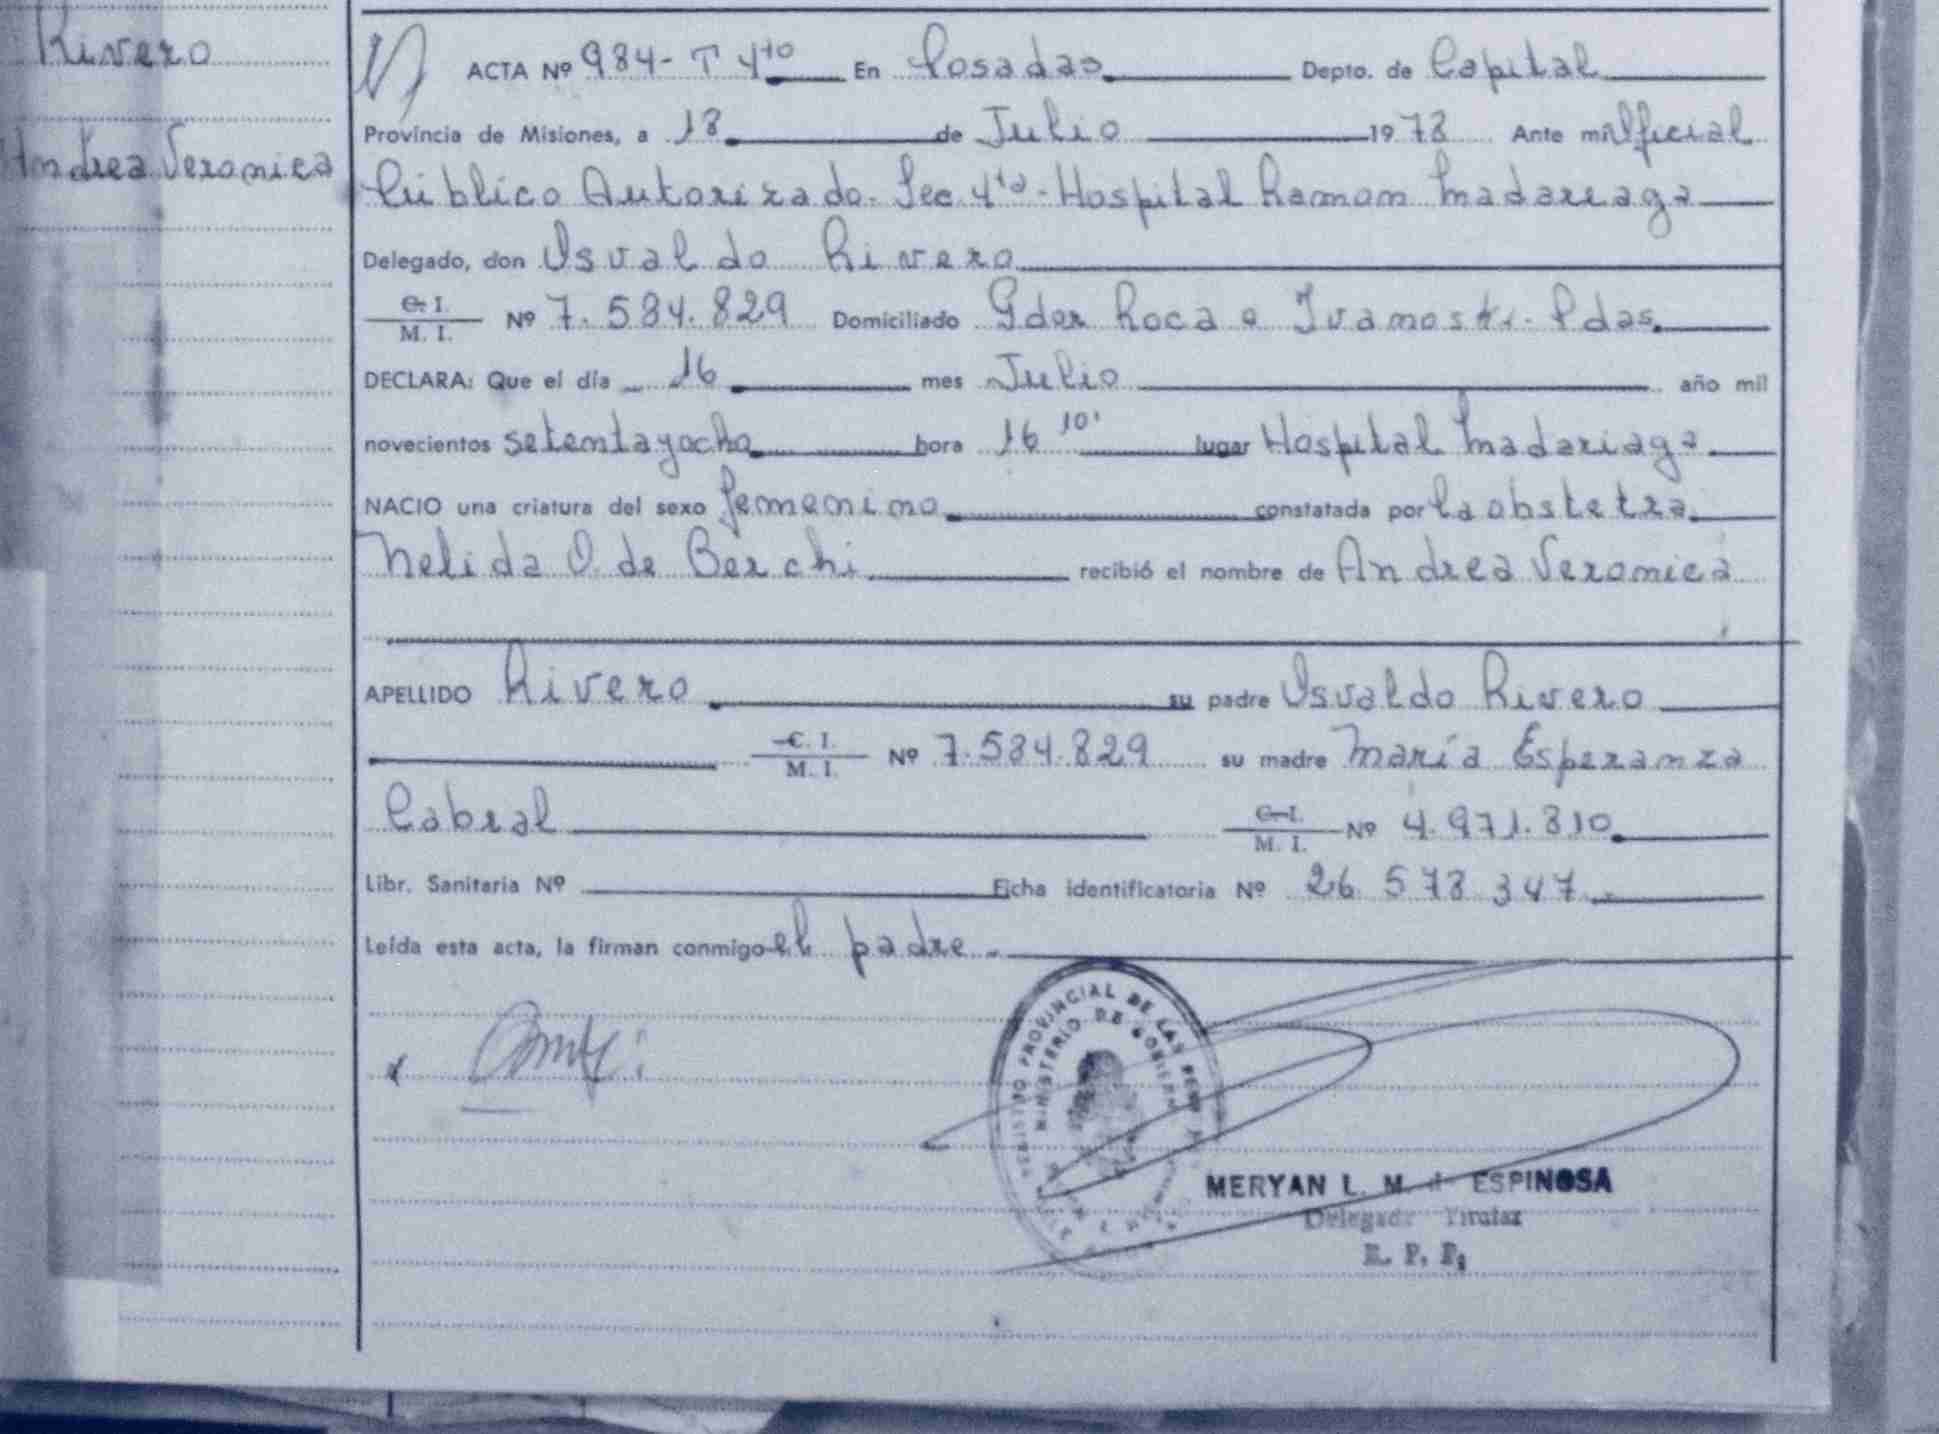 Rivero
Andrea Veronica
ACTA Nº 984- T 4to En Posadas Depto. de Capital
Provincia de Misiones, a 18 de Julio 1978 Ante mi Oficial
Público Autorizado. Sec. 4ta - Hospital Ramon Madariaga
Delegado, don Osvaldo Rivero
C. I. / M. I. Nº 7.584.829 Domiciliado Gdor Roca e Pdas.
DECLARA: Que el día 16 mes Julio año mil
novecientos setentayocho hora 16 10' lugar Hospital Madariaga
NACIO una criatura del sexo femenino constatada por la obstetra
Nelida O. de Berchi recibió el nombre de Andrea Veronica
APELLIDO Rivero su padre Osvaldo Rivero
C. I. / M. I. Nº 7.584.829 su madre María Esperanza
Cabral C. I. / M. I. Nº 4.971.810
Libr. Sanitaria Nº Ficha identificatoria Nº 26 578 347
Leída esta acta, la firman conmigo el padre
PROVINCIAL DE LAS PERS
MINISTERIO DE GOBIERNO
MERYAN L. M. d ESPINOSA
Delegada Titular
R. P. P.